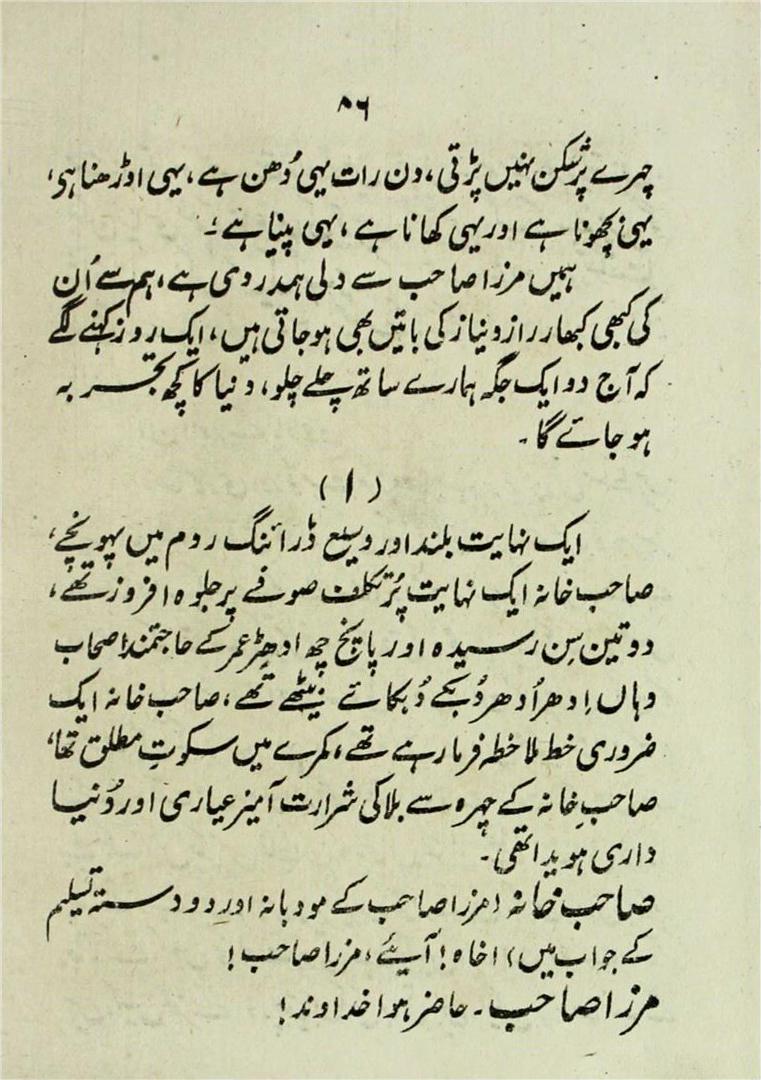 ۵۶
چہرے پر شکن نہیں پڑتی، دن رات یہی دُھن ہے، یہی اوڑھنا ہی،
یہی بچھونا ہے اور یہی کھانا ہے، یہی پینا ہے۔
ہمیں مرزا صاحب سے دلی ہمدردی ہے، ہم سے اُن
کی کبھی کبھار راز و نیاز کی باتیں بھی ہو جاتی ہیں، ایک روز کہنے لگے
کہ آج دو ایک جگہ ہمارے ساتھ چلے چلو، دنیا کا کچھ تجربہ
ہو جائے گا۔
(۱)
ایک نہایت بلند اور وسیع ڈرائنگ روم میں پہونچے،
صاحب خانہ ایک نہایت پُر تکلف صوفے پر جلوہ افروز تھے،
دو تین سِن رسیدہ اور پانچ چھ ادھیڑ عمر کے حاجتمند اصحاب
وہاں اِدھر اُدھر دُبکے دُبکائے بیٹھے تھے، صاحب خانہ ایک
ضروری خط ملاحظہ فرما رہے تھے، کمرے میں سکوتِ مطلق تھا،
صاحبِ خانہ کے چہرہ سے بلا کی شرارت آمیز عیاری اور دُنیا
داری ہویدا تھی۔
صاحب خانہ (مرزا صاحب کے مودبانہ اور دو دستہ تسلیم
کے جواب میں) اخاہ! آیئے، مرزا صاحب!
مرزا صاحب۔ حاضر ہوا خداوند!